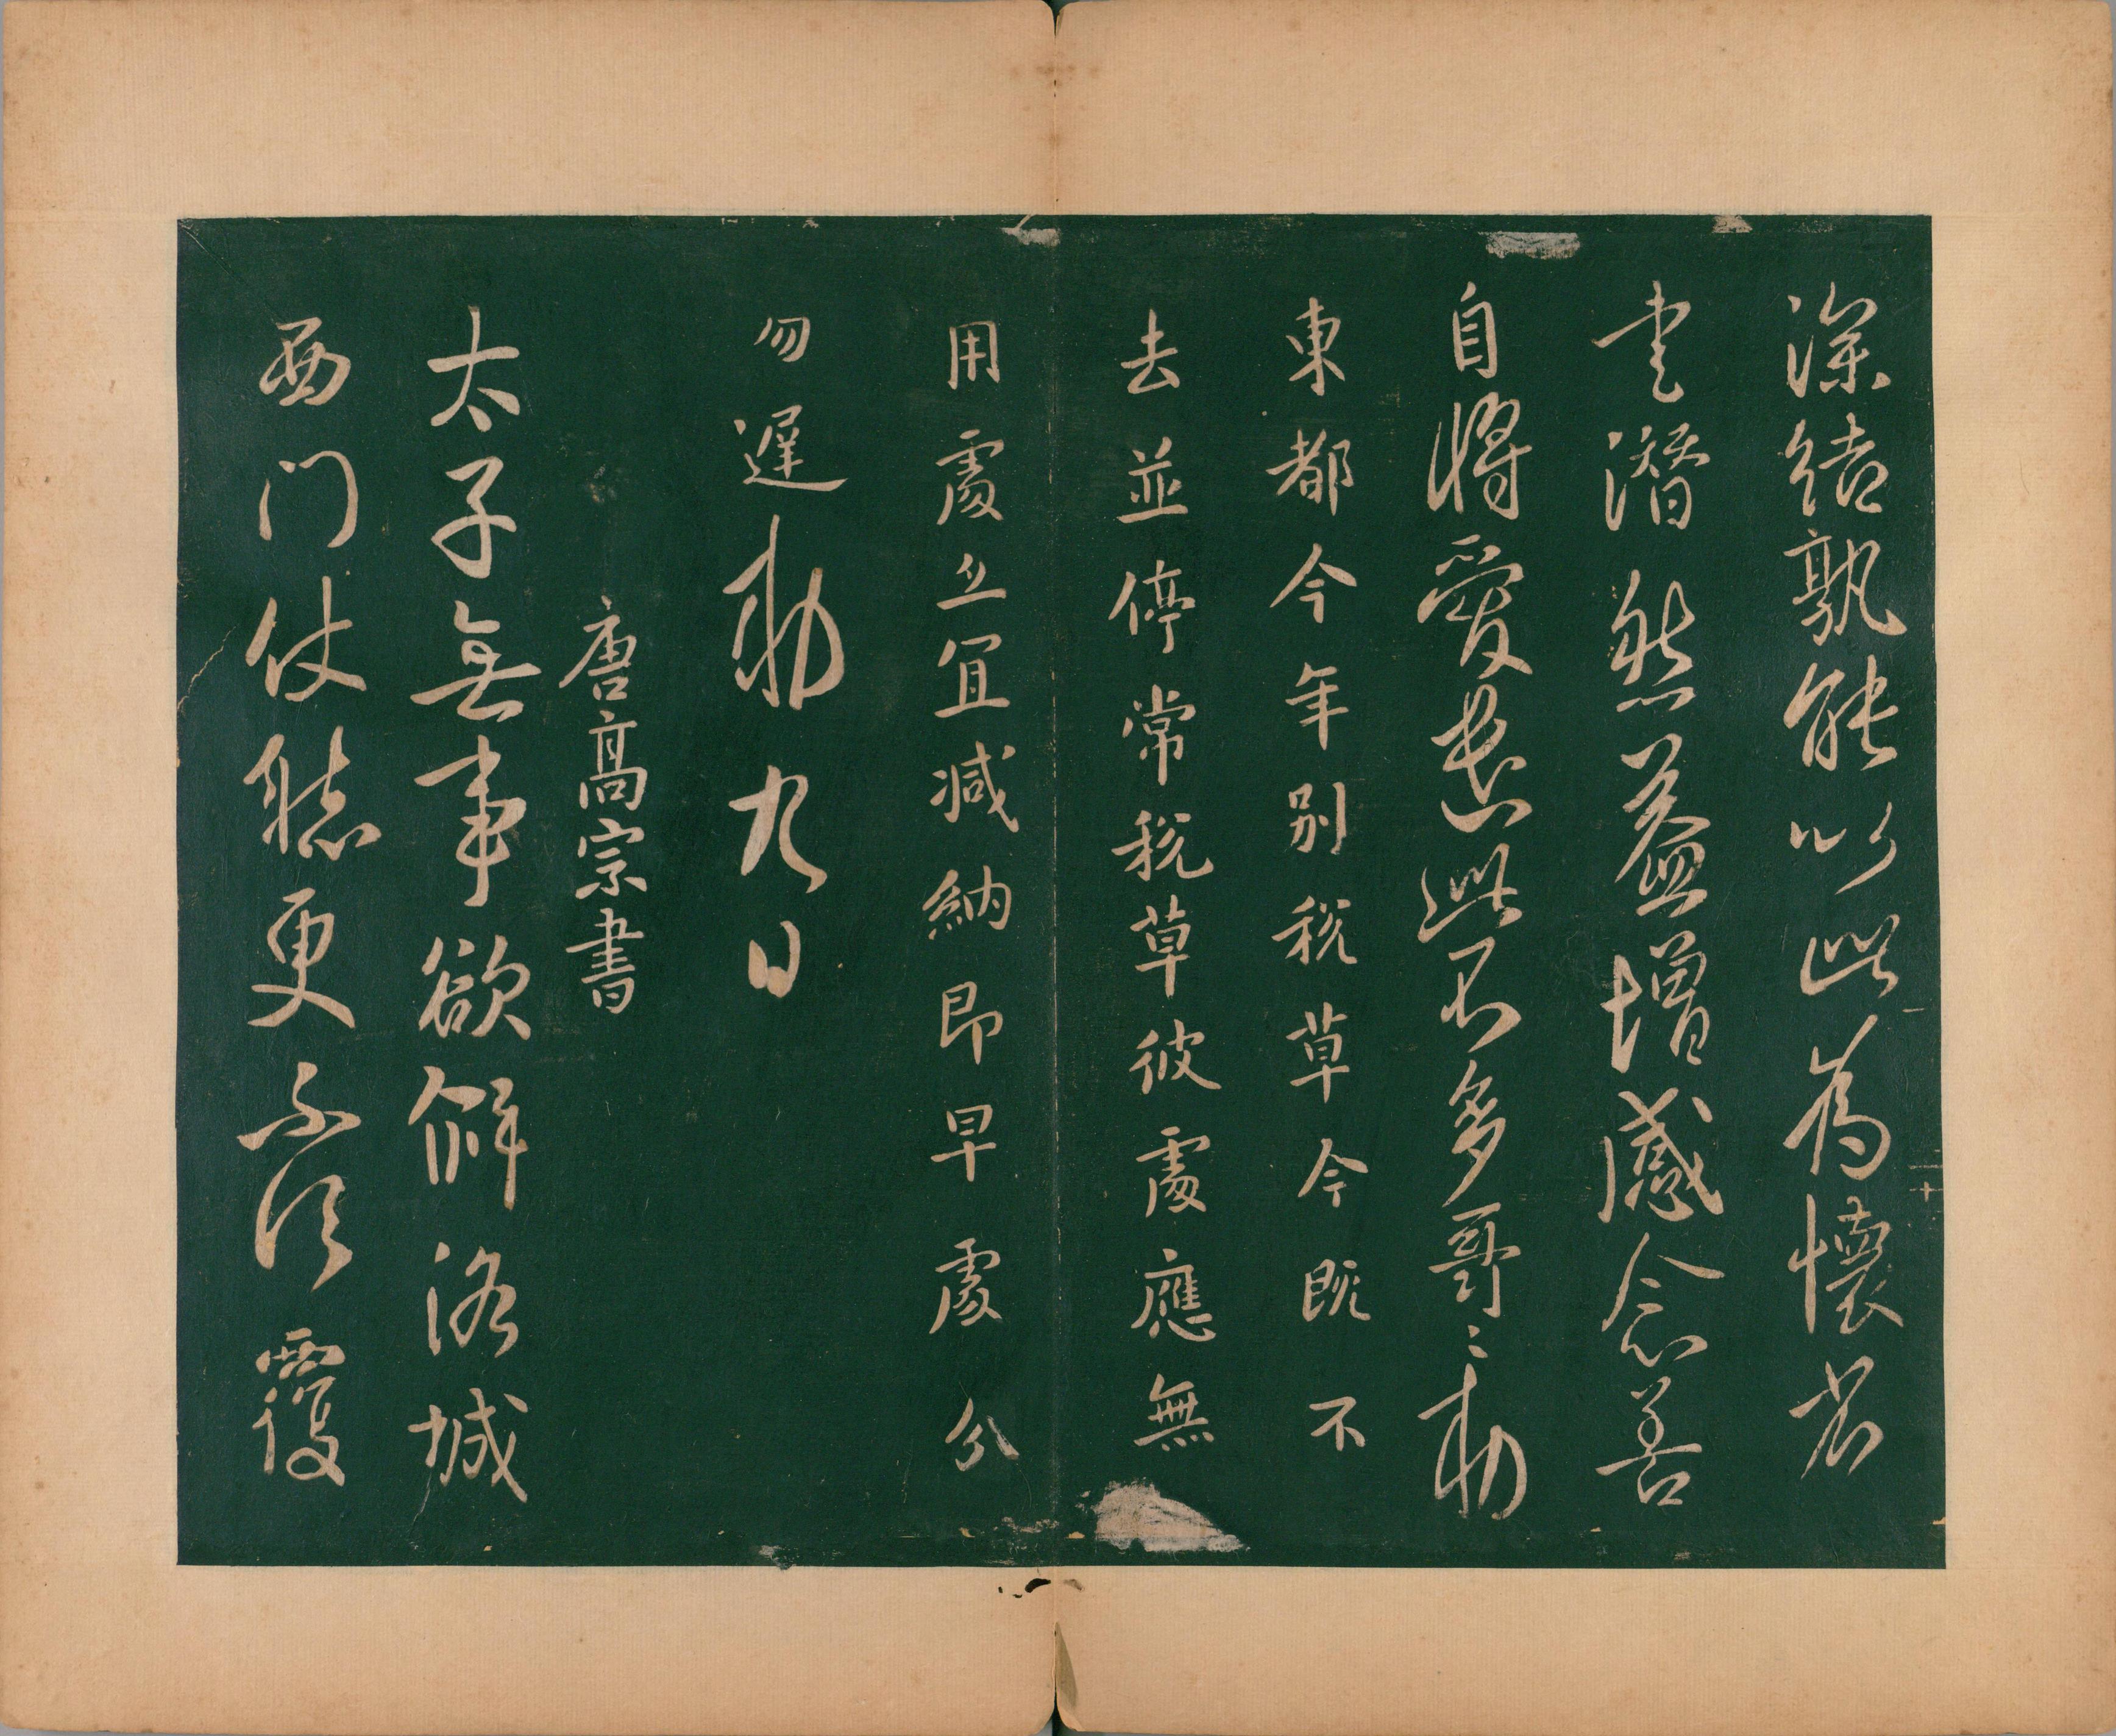 深結孰能以此為懷省
書潛然益增感念善
自將愛遣此不多哥〻勅
東都今年別稅草今既不
去並停常稅草彼處應無
用處亦宜減納即早處分
勿遲勅九日
唐高宗書
太子無事欲解洛城
西門仗聴更不須覆